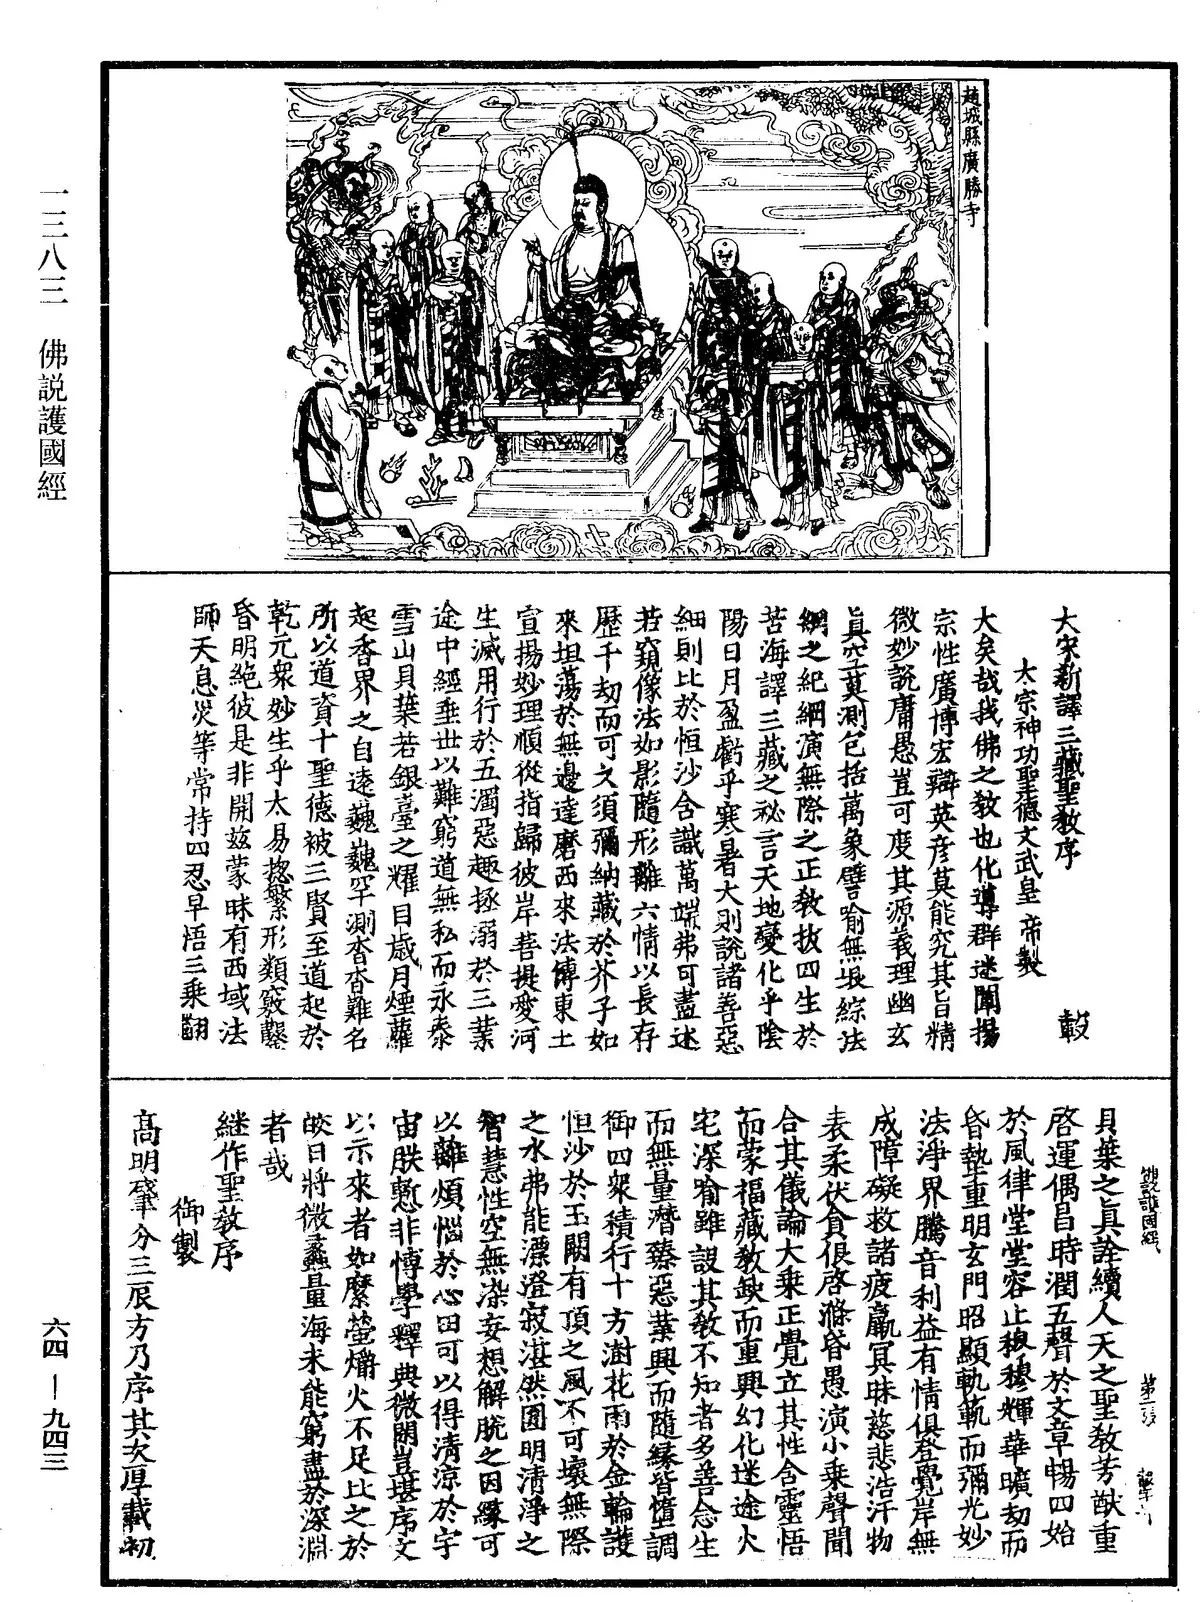 一三八三　佛説護國經
六四－九四三
趙城縣廣勝寺
大宋新譯三藏聖教序　　轂
太宗神功聖德文武皇帝製
大矣哉我佛之教也化導群迷闡揚
宗性廣博宏辯英彦莫能究其旨精
微妙説庸愚豈可度其源義理幽玄
真空莫測包括萬象譬喻無垠綜法
網之紀綱演無際之正教拔四生於
苦海譯三藏之祕言天地變化乎陰
陽日月盈虧乎寒暑大則説諸善惡
細則比於恒沙含識萬端弗可盡述
若窺像法如影隨形離六情以長存
歷千劫而可久須彌納藏於芥子如
來坦蕩於無邊達磨西來法傳東土
宣揚妙理順從指歸彼岸菩提愛河
生滅用行於五濁惡趣拯溺於三業
途中經垂世以難窮道無私而永泰
雪山貝葉若銀臺之耀目歲月煙蘿
起香界之自遠巍巍罕測杳杳難名
所以道資十聖德被三賢至道起於
乾元衆妙生乎太易揔繁形類竅鑿
昏明絶彼是非開兹蒙昧有西域法
師天息災等常持四忍早悟三乘翻
貝葉之真詮續人天之聖教芳猷重
啓運偶昌時潤五聲於文章暢四始
於風律堂堂容止穆穆輝華曠劫而
昏墊重明玄門昭顯軌範而彌光妙
法淨界騰音利益有情俱登覺岸無
成障礙救諸疲羸冥昧慈悲浩汗物
表柔伏貪佷啓滌昏愚演小乘聲聞
合其儀論大乘正覺立其性含靈悟
而蒙福藏教缺而重興幻化迷途火
宅深喻雖設其教不知者多善念生
而無量潛臻惡業興而隨緣皆墮調
御四衆積行十方澍花雨於金輪護
恒沙於玉闕有頂之風不可壞無際
之水弗能漂澄寂湛然圓明清淨之
智慧性空無染妄想解脱之因緣可
以離煩惱於心田可以得清涼於宇
宙朕慙非博學釋典微閑豈堪序文
以示來者如縻螢爝火不足比之於
皎日將微蠡量海未能窮盡於深淵
者哉
继作聖教序
御製
高明肇分三辰方乃序其次厚載初
佛説護國經　第二張　轂字号